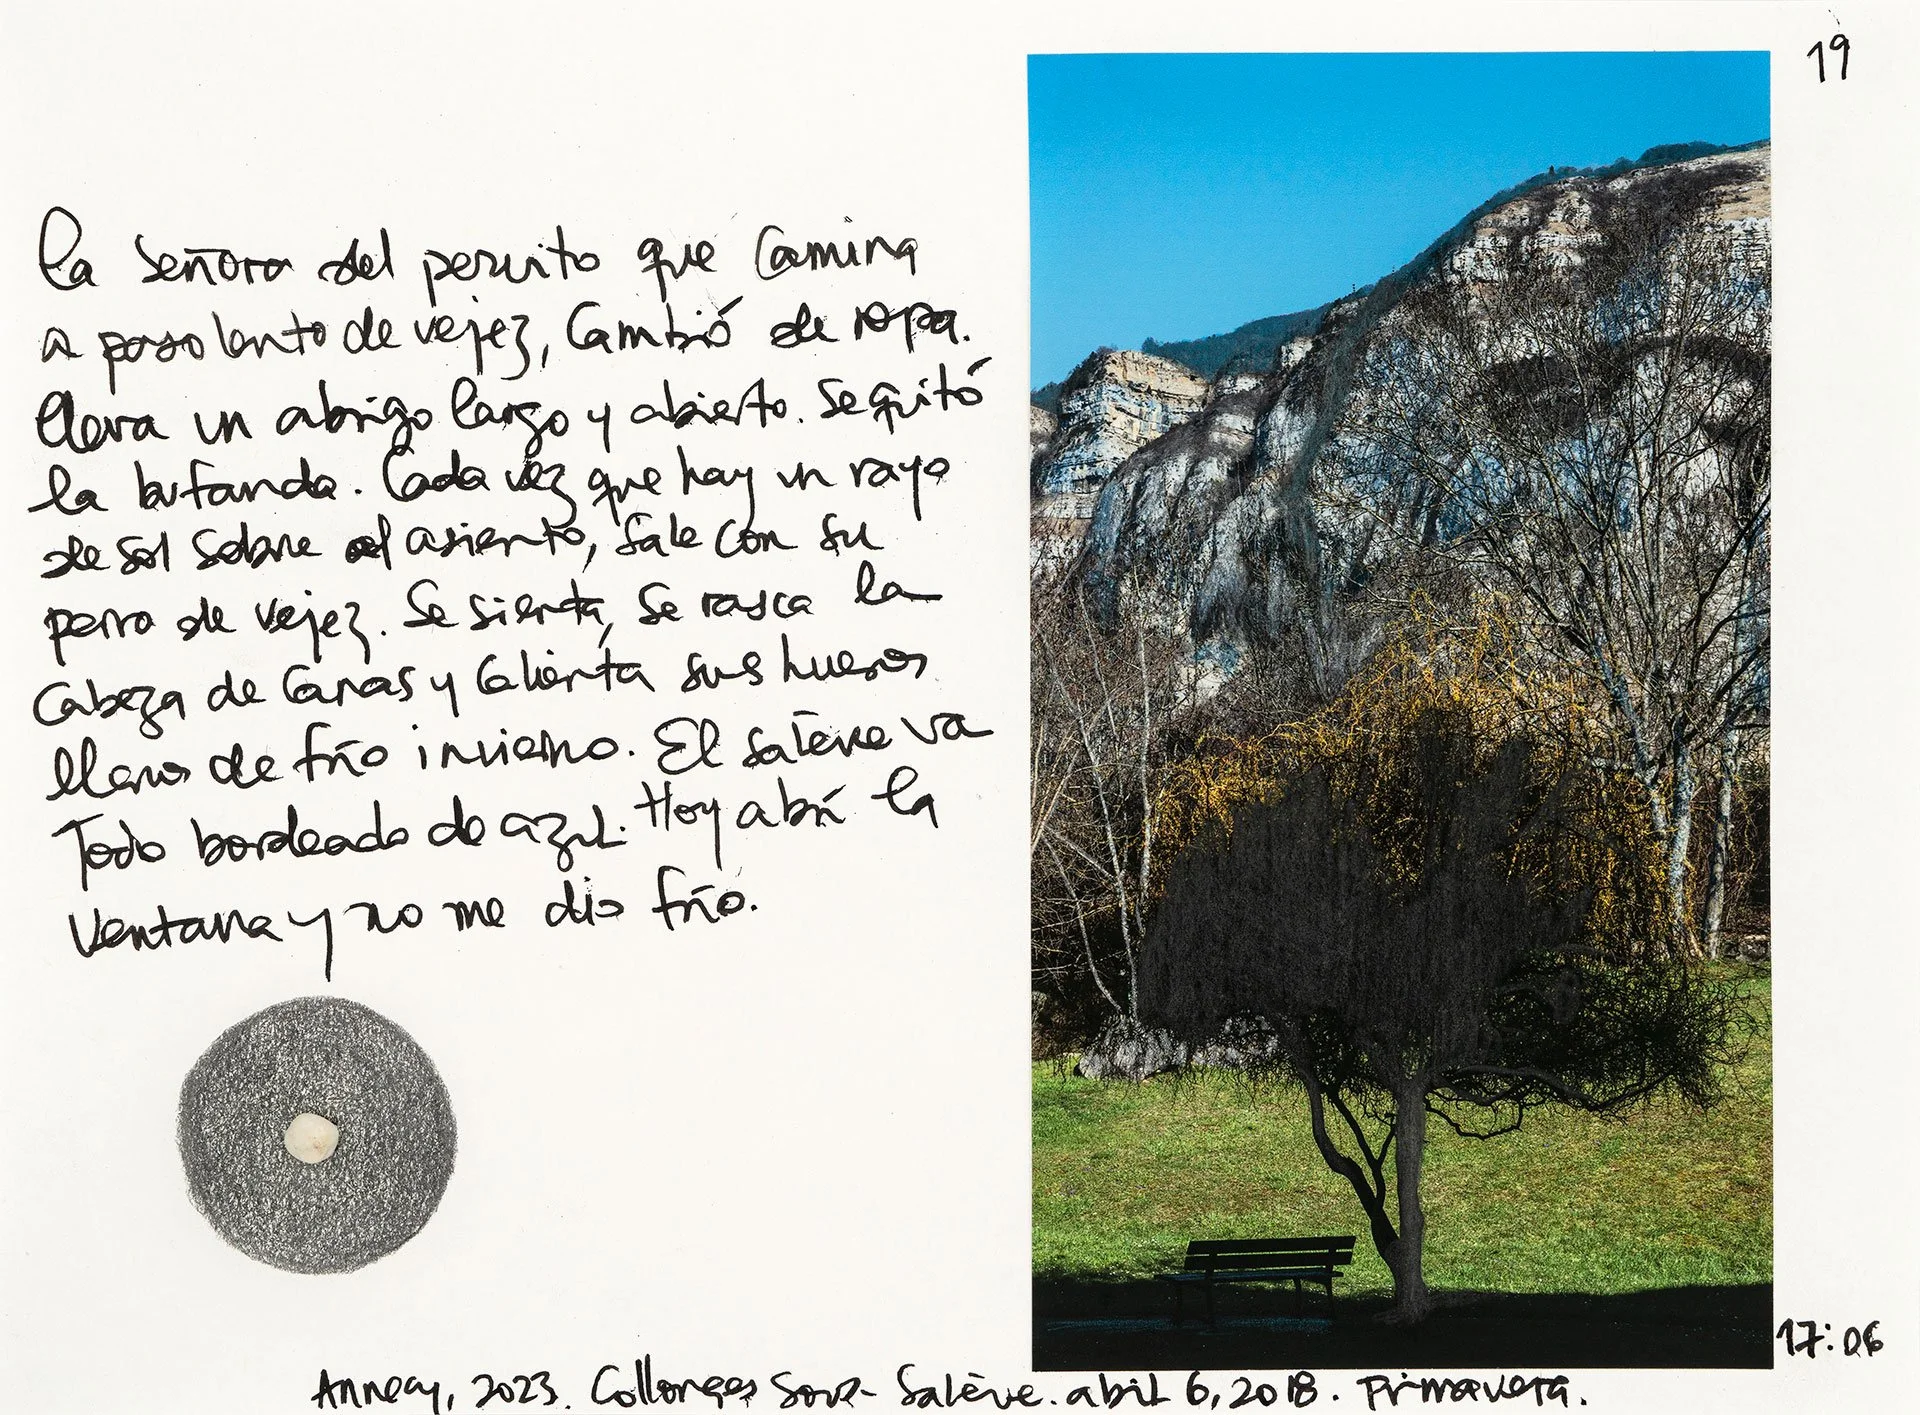 19
La señora del perrito que camina
a paso lento de vejez, cambió de ropa.
Lleva un abrigo largo y abierto. Se quitó
la bufanda. Cada vez que hay un rayo
de sol sobre el asiento, sale con su
perro de vejez. Se sienta, se rasca la
cabeza de canas y calienta sus huesos
llenos de frío invierno. El Salève va
todo bordeado de azul. Hoy abrí la
ventana y no me dio frío.
17:06
Annecy, 2023. Collonges Sous-Salève. abril 6, 2018. Primavera.